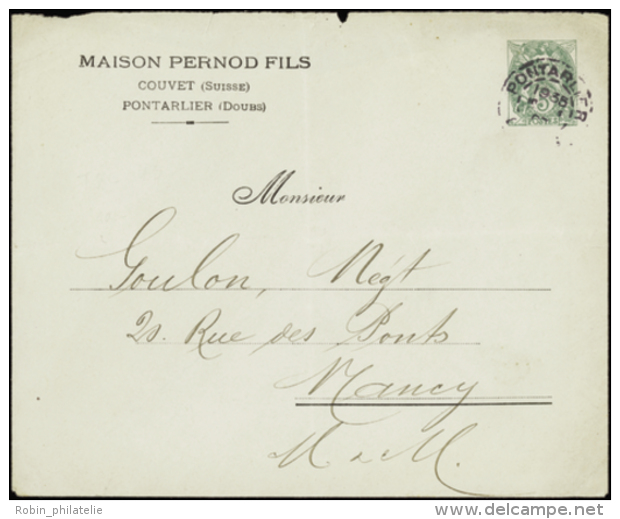 MAISON PERNOD FILS
COUVET (SUISSE)
PONTARLIER (DOUBS)
PONTARLIER
Monsieur
Goulon, Négt
20 Rue des Ponts
Nancy
M & M.
Robin_philatelie
www.delcampe.net